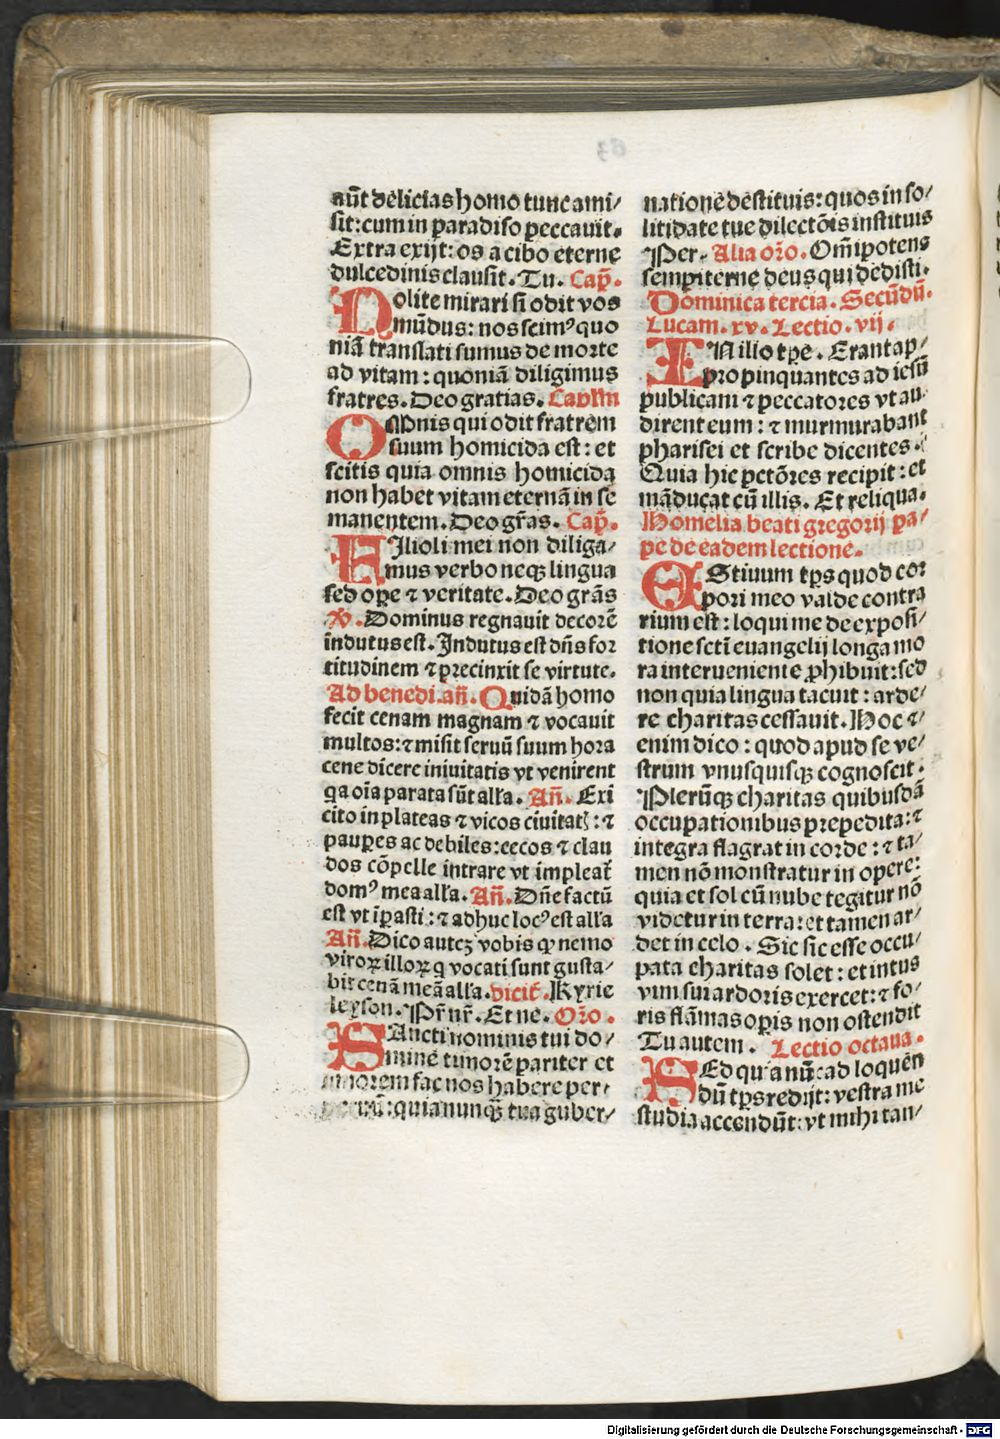 aūt delicias homo tunc ami⸗
sit: cum in paradiso peccauit.
Extra exijt: os a cibo eterne
dulcedinis clausit. Tu. Cap̄.
Nolite mirari si odit vos
mūdus: nos scimꝰ quo
niā translati sumus de morte
ad vitam: quoniā diligimus
fratres. Deo gratias. Caplm
OMnis qui odit fratrem
suum homicida est: et
scitis quia omnis homicida
non habet vitam eternā in se
manentem. Deo gr̄as. Cap̄.
FIlioli mei non diliga⸗
mus verbo neqꝫ lingua
sed oꝑe ⁊ veritate. Deo grās
℣. Dominus regnauit decorē
indutus est. Indutus est dn̄s for
titudinem ⁊ precinxit se virtute.
Ad benedi. an̄. Quidā homo
fecit cenam magnam ⁊ vocauit
multos: ⁊ misit seruū suum hora
cene dicere inuitatis vt venirent
qa oīa parata sūt all'a. An̄. Exi
cito in plateas ⁊ vicos ciuitatꝭ: ⁊
pauꝑes ac debiles: cecos ⁊ clau
dos cōpelle intrare vt impleat᷑
domꝰ mea all'a. An̄. Dn̄e factū
est vt īpasti: ⁊ adhuc locꝰ est all'a
An̄. Dico autēꝫ vobis ꝙ nemo
viroꝝ illoꝝ q vocati sunt gusta⸗
bit cenā meā all'a. dicit᷑. Kyrie
leyson. Pr̄ nr̄. Et ne. Or̄o.
SAncti nominis tui do⸗
mine timorē pariter et
amorem fac nos habere per⸗
petuū: quia nunqꝫ tua guber⸗
natione destituis: quos in so⸗
litidate tue dilectōis instituis
Per. Alia or̄o. Om̄ipotens
sempiterne deus qui dedisti.
Dominica tercia. Secūdū.
Lucam. xv. Lectio. vij.
IN illo tꝑe. Erant ap⸗
propinquantes ad iesū
publicani ⁊ peccatores vt au⸗
dirent eum: ⁊ murmurabant
pharisei et scribe dicentes.
Quia hic pctōres recipit: et
māducat cū illis. Et reliqua.
Homelia beati gregorij pa⸗
pe de eadem lectione.
EStiuum tꝑs quod cor
pori meo valde contra
rium est: loqui me de exposi⸗
tione scti euangelij longa mo
ra interueniente ꝓhibuit: sed
non quia lingua tacuit: arde⸗
re charitas cessauit. Hoc ⁊⸗
enim dico: quod apud se ve⸗
strum vnusquisqꝫ cognoscit.
Plerūqꝫ charitas quibusdā
occupationibus prepedita: ⁊
integra flagrat in corde: ⁊ ta⸗
men nō monstratur in opere:
quia et sol cū nube tegitur nō
videtur in terra: et tamen ar⸗
det in celo. Sic sic esse occu⸗
pata charitas solet: et intus
vim sui ardoris exercet: ⁊ fo⸗
ris flāmas oꝑis non ostendit
Tu autem. Lectio octaua.
SEd quia nūc ad loquen
dū tꝑs redijt: vestra me
studia accendūt: vt mihi tan⸗
Digitalisierung gefördert durch die Deutsche Forschungsgemeinschaft - DFG